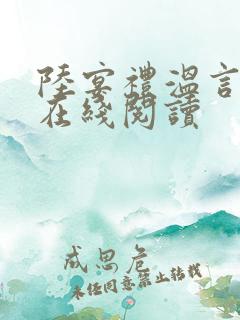 陸宴禮溫言
在綫閱讀
成思危
未经同意禁止转载